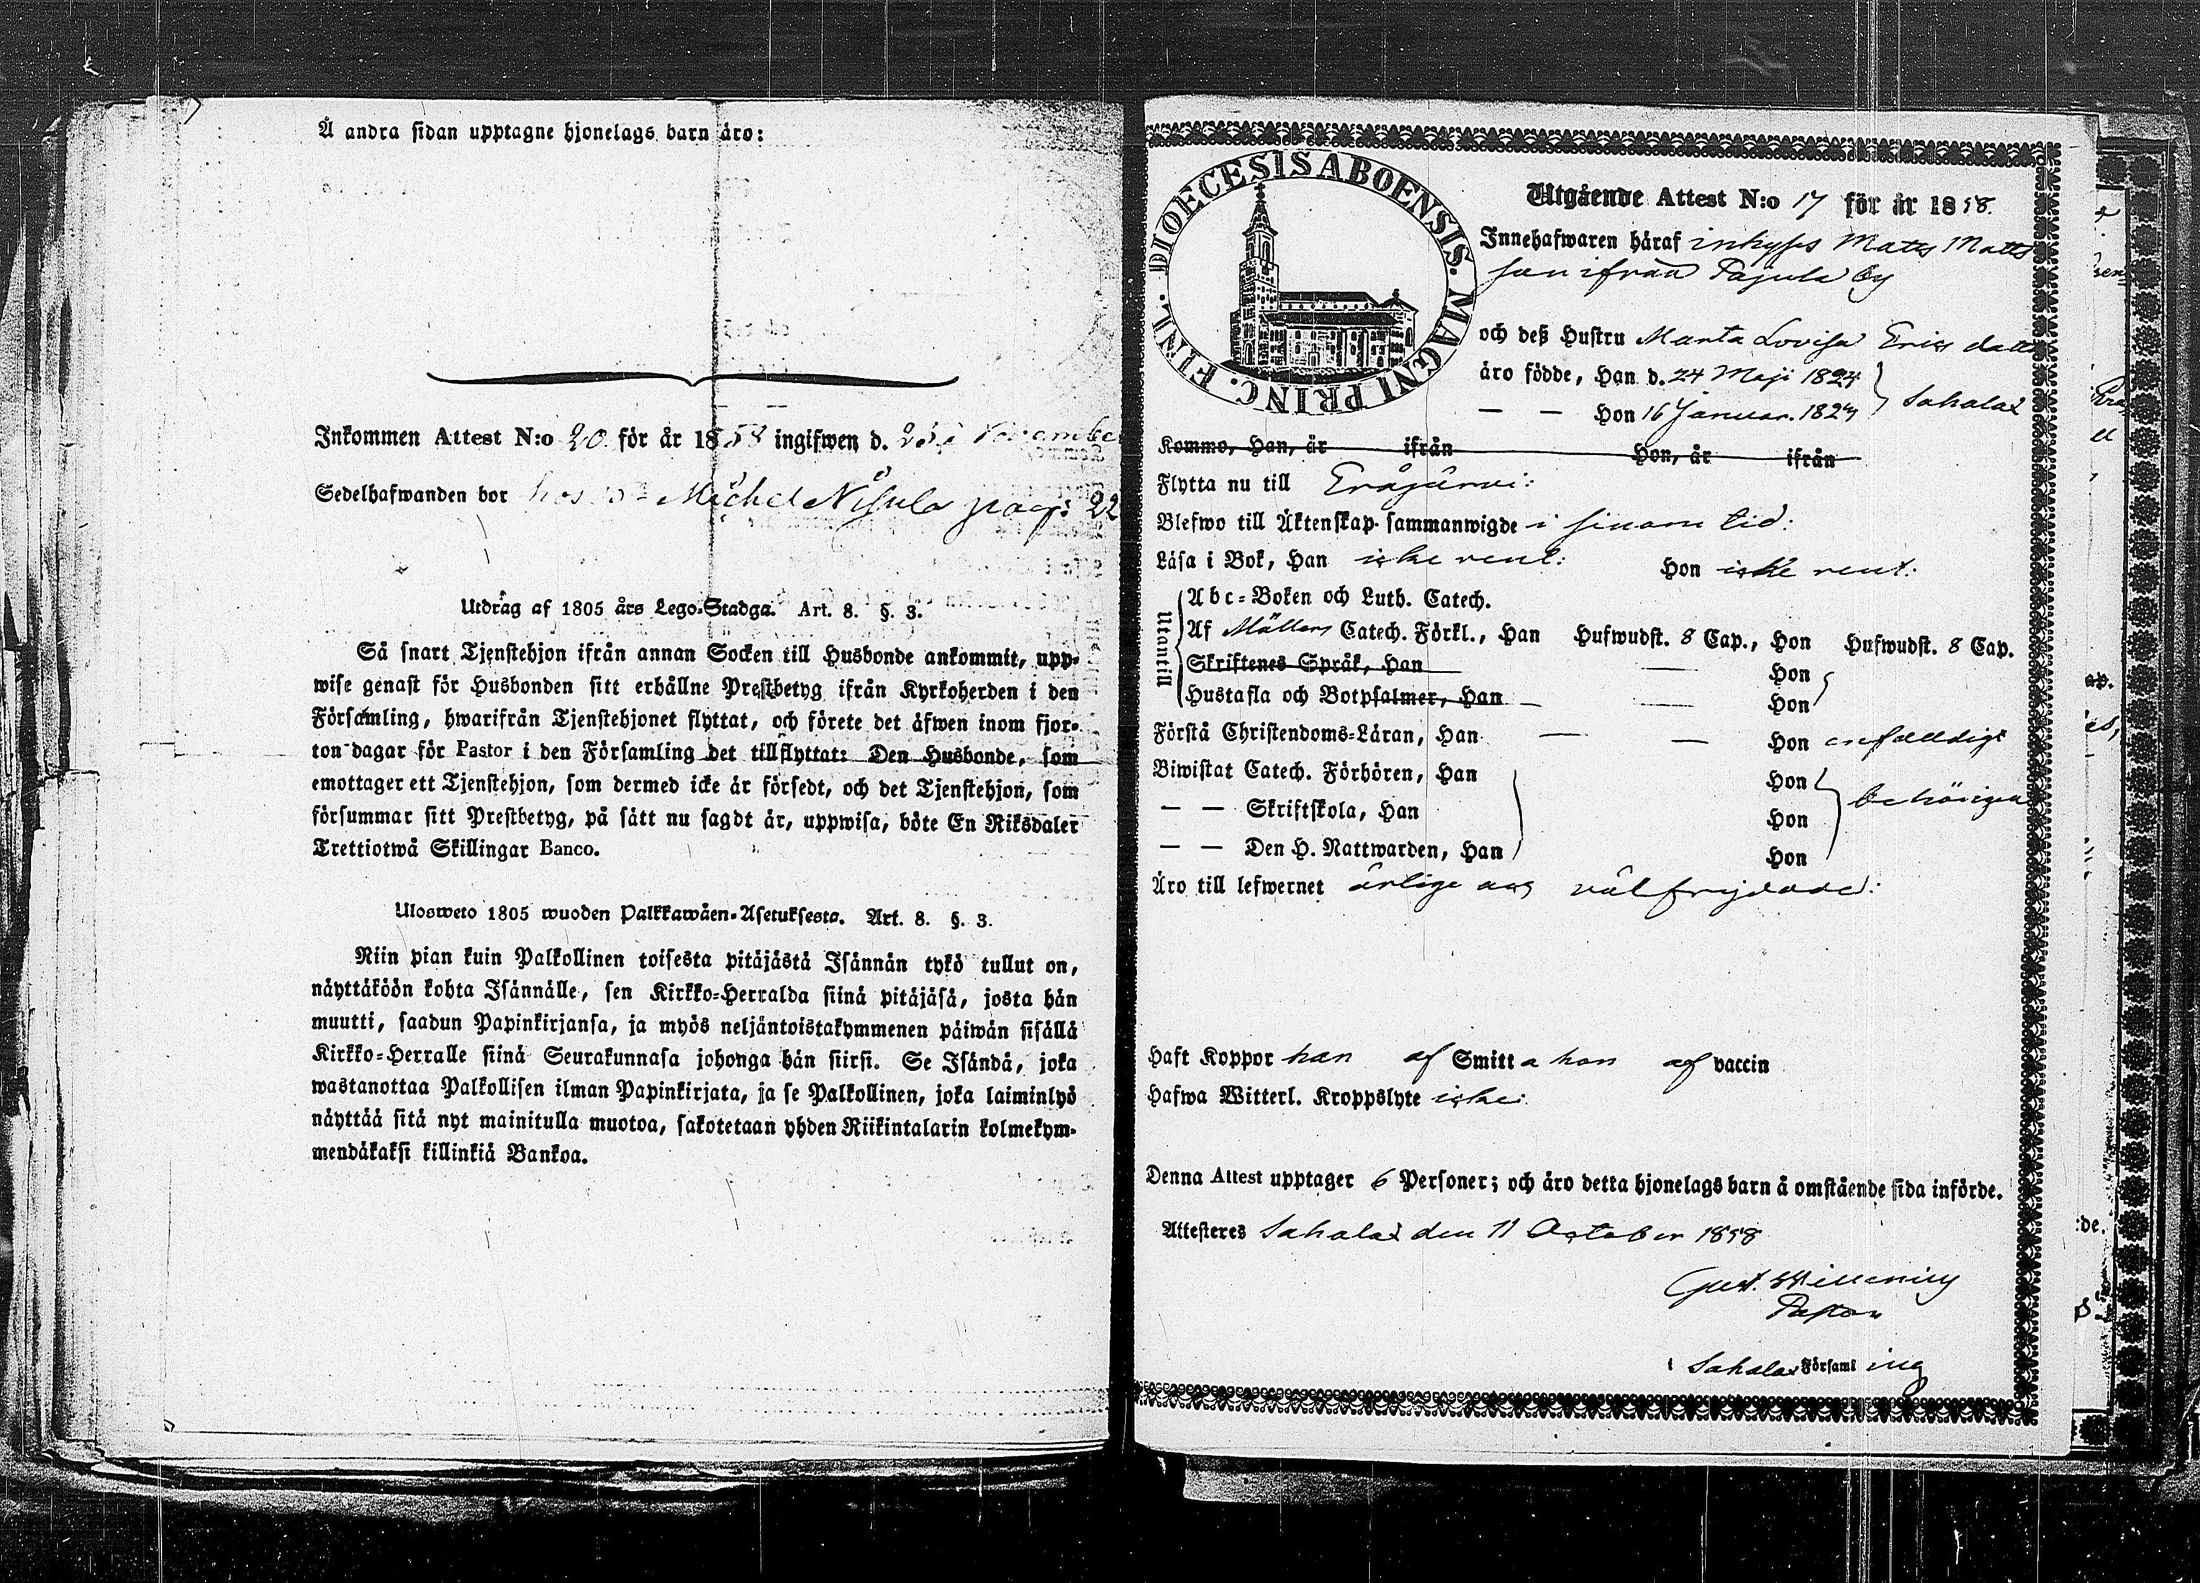 Å andra sidan upptagne hjonelags barn äro:
Inkommen Attest N:o 20 för år 1858 ingifwen d. November
Sedelhafwanden bor hos Michel Nisula pag: 22
Utdrag af 1805 års Lego-Stadga. Art. 8. §. 3.
Så snart Tjenstehjon ifrån annan Socken till Husbonde ankommit, upp-
wise genast för Husbonden sitt erhållne Prestbetyg ifrån Kyrkoherden i den
Församling, hwarifrån Tjenstehjonet flyttat, och förete det äfwen inom fjor-
ton dagar för Pastor i den Församling det tillflyttat: Den Husbonde, som
emottager ett Tjenstehjon, som dermed icke är försedt, och det Tjenstehjon, som
försummar sitt Prestbetyg, på sätt nu sagdt är, uppwisa, böte En Riksdaler
Trettiotwå Skillingar Banco.
Ulosweto 1805 wuoden Palkkawäen-Asetuksesta. Art. 8. §. 3.
Niin pian kuin Palkollinen toisesta pitäjästä Isännän tykö tullut on,
näyttäköön kohta Isännälle, sen Kirkko-Herralda siinä pitäjäsä, josta hän
muutti, saadun Papinkirjansa, ja myös neljäntoistakymmenen päiwän sisällä
Kirkko-Herralle siinä Seurakunnasa johonga hän siirsi. Se Isändä, joka
wastanottaa Palkollisen ilman Papinkirjata, ja se Palkollinen, joka laiminlyö
näyttää sitä nyt mainitulla muotoa, sakotetaan yhden Riikintalarin kolmekym-
mendäkaksi killinkiä Bankoa.
DIOECESIS ABOENSIS. MAGNI PRINC. FINL.
Utgående Attest N:o 17 för år 1858.
Innehafwaren häraf inhyses Matts Matts
son ifrån Pajula by
och deß Hustru Maria Lovisa Ericsdotter
äro födde, Han d. 24 Maji 1824
— — Hon 16 Januar. 1824 } Sahalax
Kommo, Han, år ifrån Hon, år ifrån
Flytta nu till Eräjärvi:
Blefwo till Äktenskap sammanwigde i sinom tid:
Läsa i Bok, Han icke rent: Hon icke rent:
Utantill
Abc-Boken och Luth. Catech.
Af Möllers Catech. Förkl., Han Hufwudst. 8 Cap., Hon Hufwudst. 8 Cap.
Skriftenes Språk, Han — Hon
Hustafla och Botpsalmer, Han — — Hon
Förstå Christendoms-Läran, Han — — Hon enfaldigt
Biwistat Catech. Förhören, Han Hon
— — Skriftskola, Han Hon behörigen
— — Den H. Nattwarden, Han Hon
Äro till lefwernet ärlige och välfrejdade:
Haft Koppor han af Smitta hon af vaccin
Hafwa Witterl. Kroppslyte icke:
Denna Attest upptager 6 Personer; och äro detta hjonelags barn å omstående sida införde.
Attesteres Sahalax den 11 October 1858
Gust.
Pastor
i Sahalax Församling